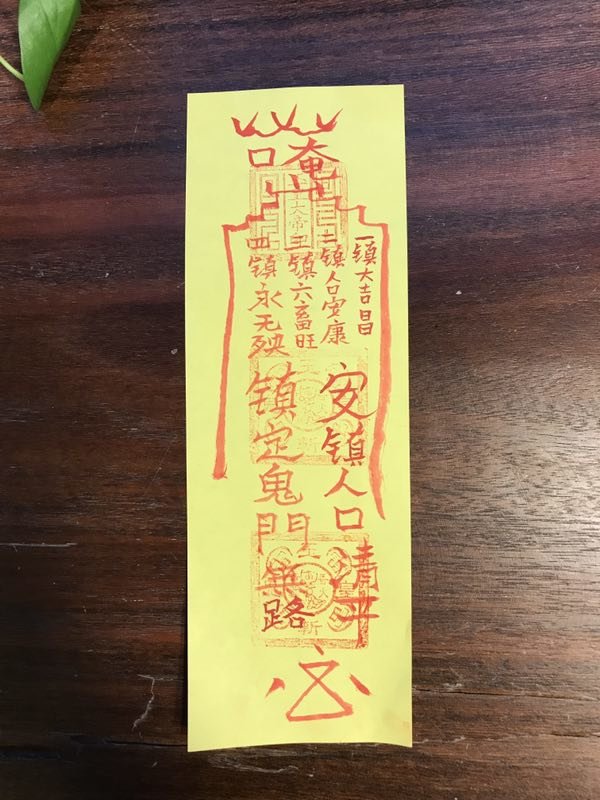 唵
一镇大吉昌
二镇人口安康
三镇六畜旺
四镇永无殃
安镇人口清平
镇定鬼門無路